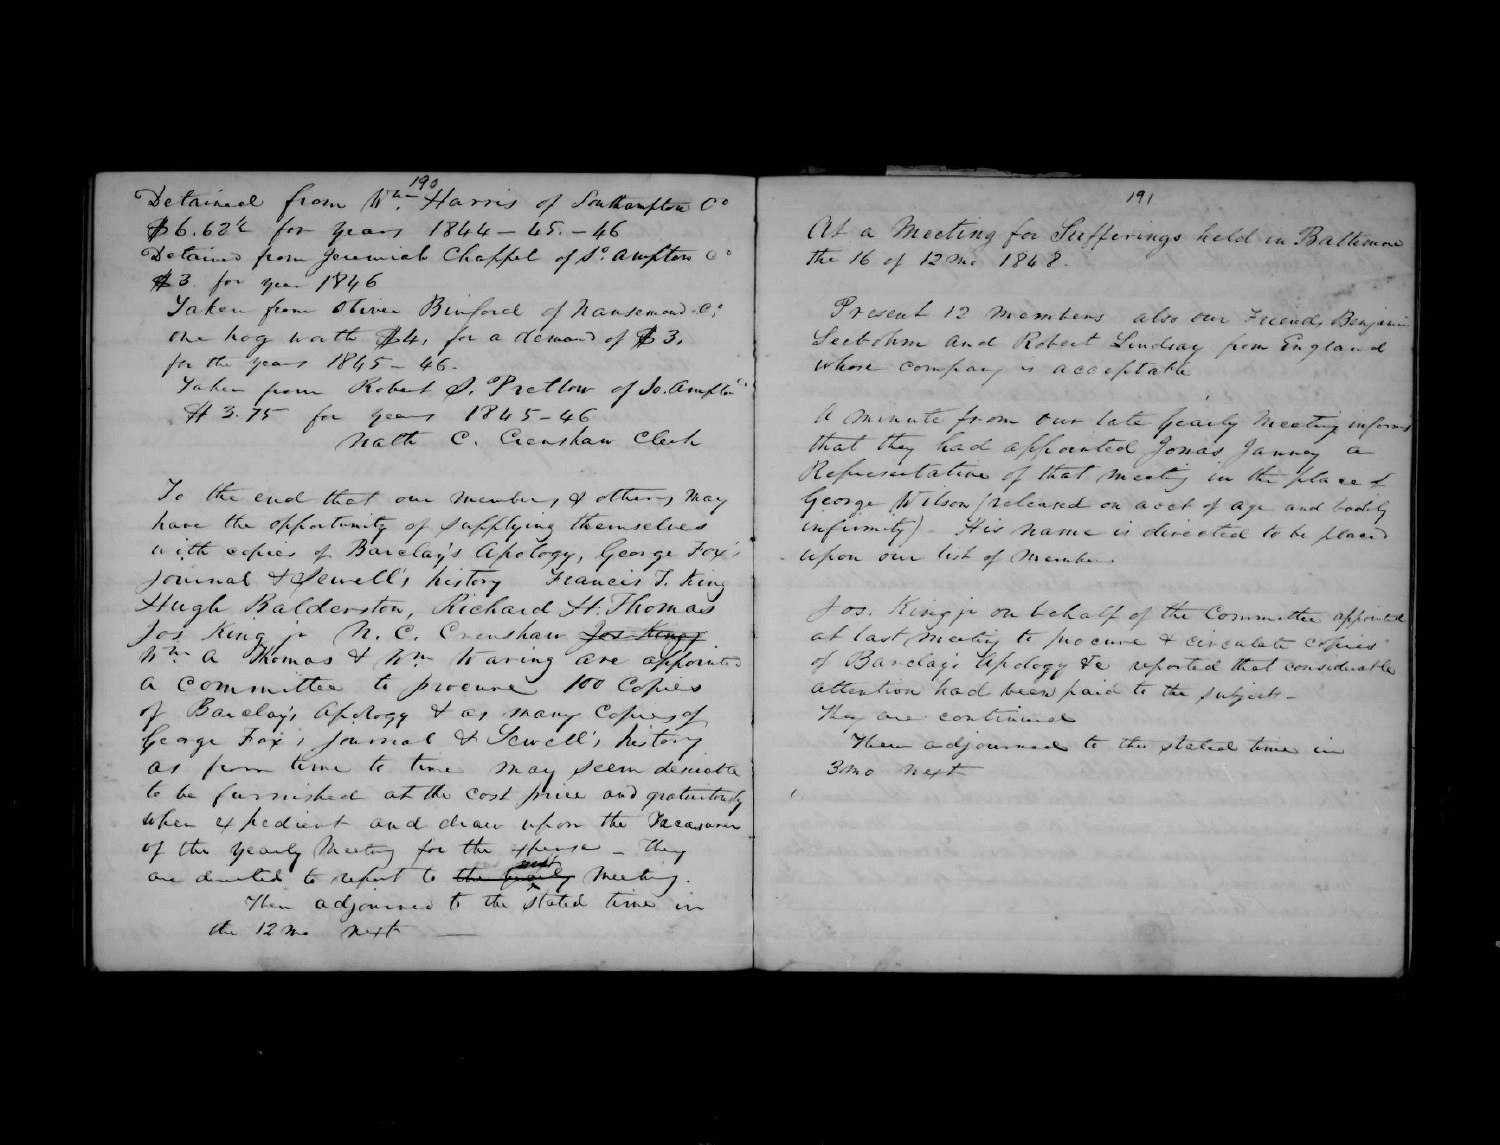 190
Detained from Wm. Harris of Southampton Co
$6.62½ for years 1844 – 45. – 46
Detained from Jeremiah Chappel of So. ampton Co
$3. for year 1846
Taken from Oliver Binford of Nansemond Co.
one hog worth $4, for a demand of $3.
for the years 1845 – 46.
Taken from Robert S. Pretlow of So. Ampton
$3.75 for years 1845–46
Nath C. Crenshaw Clerk
To the end that our members & others may
have the opportunity of supplying themselves
with copies of Barclay's Apology, George Fox's
Journal & Sewell's history Francis T. King
Hugh Balderston, Richard H. Thomas
Jos. King jr N. C. Crenshaw Jos King jr
Wm A Thomas & Wm Waring are appointed
a committee to procure 100 Copies
of Barclay's Apology & as many Copies of
George Fox's Journal & Sewell's history
as from time to time may seem desirable
to be furnished at the cost price and gratuitously
when expedient and draw upon the Treasurer
of the yearly Meeting for the expense – they
are directed to report to the yearly next Meeting.
Then adjourned to the stated time in
the 12 mo next —
191
At a Meeting for Sufferings held in Baltimore
the 16 of 12 mo 1848.
Present 12 members also our Friends Benjamin
Seebohm and Robert Lindsay from England
whose company is acceptable
A minute from our late Yearly Meeting informs
that they had appointed Jonas Janney a
Representative of that meeting in the place of
George Wilson (released on acct of age and bodily
infirmity) – His name is directed to be placed
upon our list of Members
Jos. King jr on behalf of the Committee appointed
at last meeting to procure & circulate copies
of Barclay's Apology &c reported that considerable
attention had been paid to the subject –
They are continued
Then adjourned to the stated time in
3 mo next